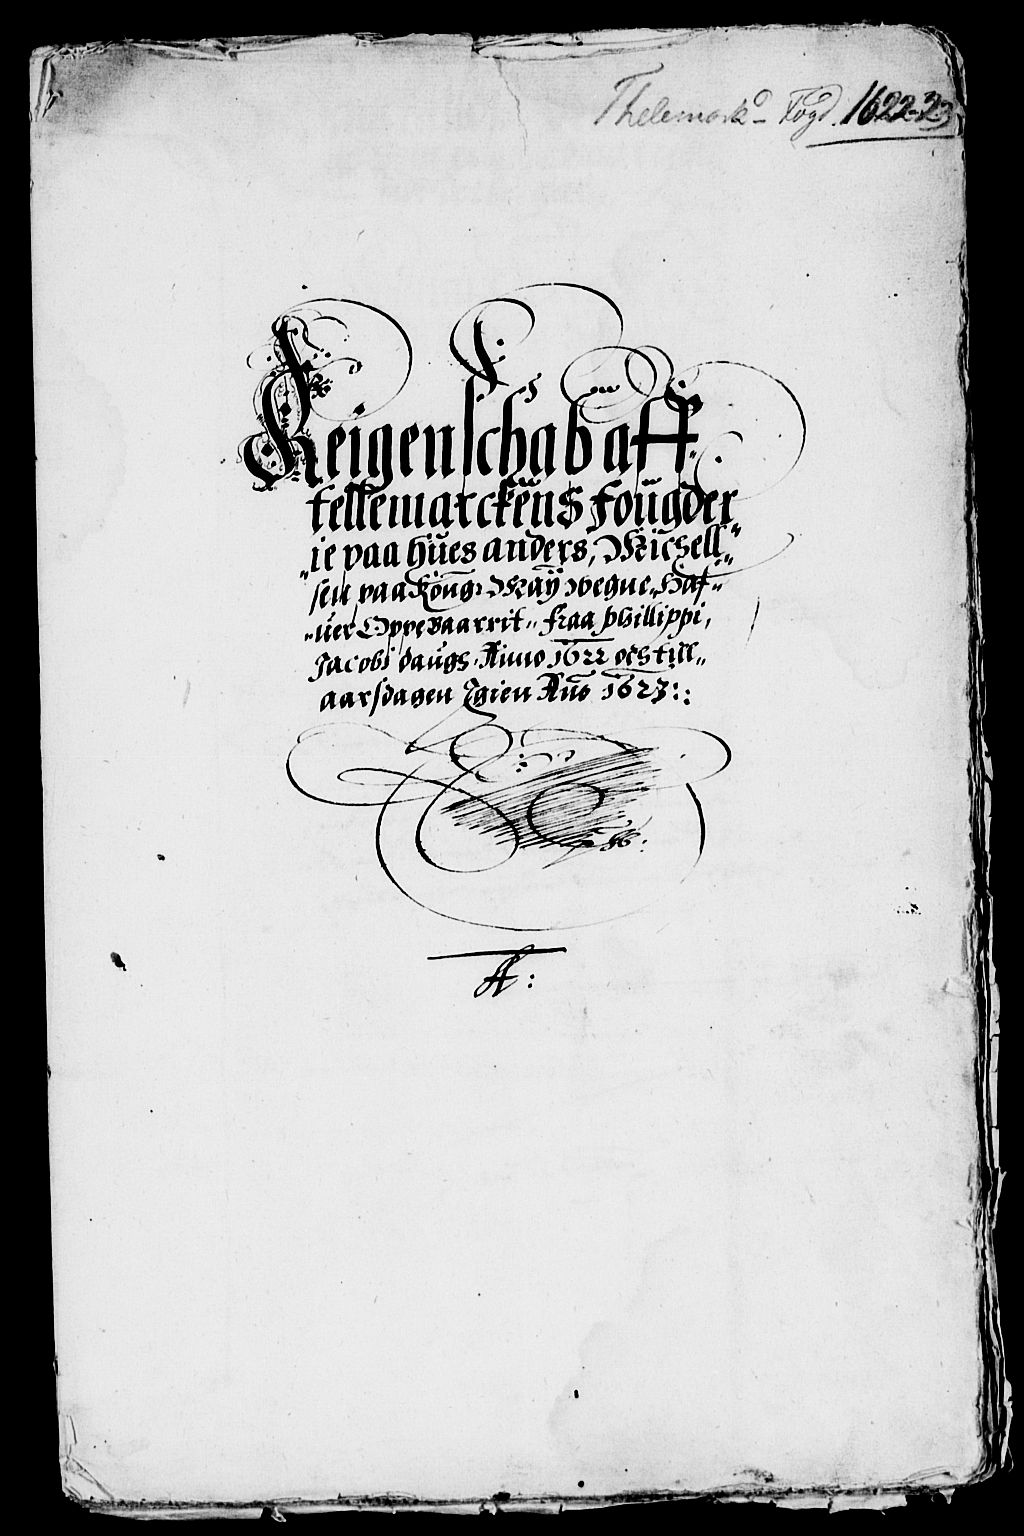 Thelemark Fogd. 1622-23
Reigenschab aff
tellemarckens fougder
ie paa hues anders, Michell
sen paa Kong: May: wegne, Haf
uer Oppebaarrit fraa phillippi,
Jacobi daugs Anno 1622 och till
aarsdagen Igien Ano 1623:
A: